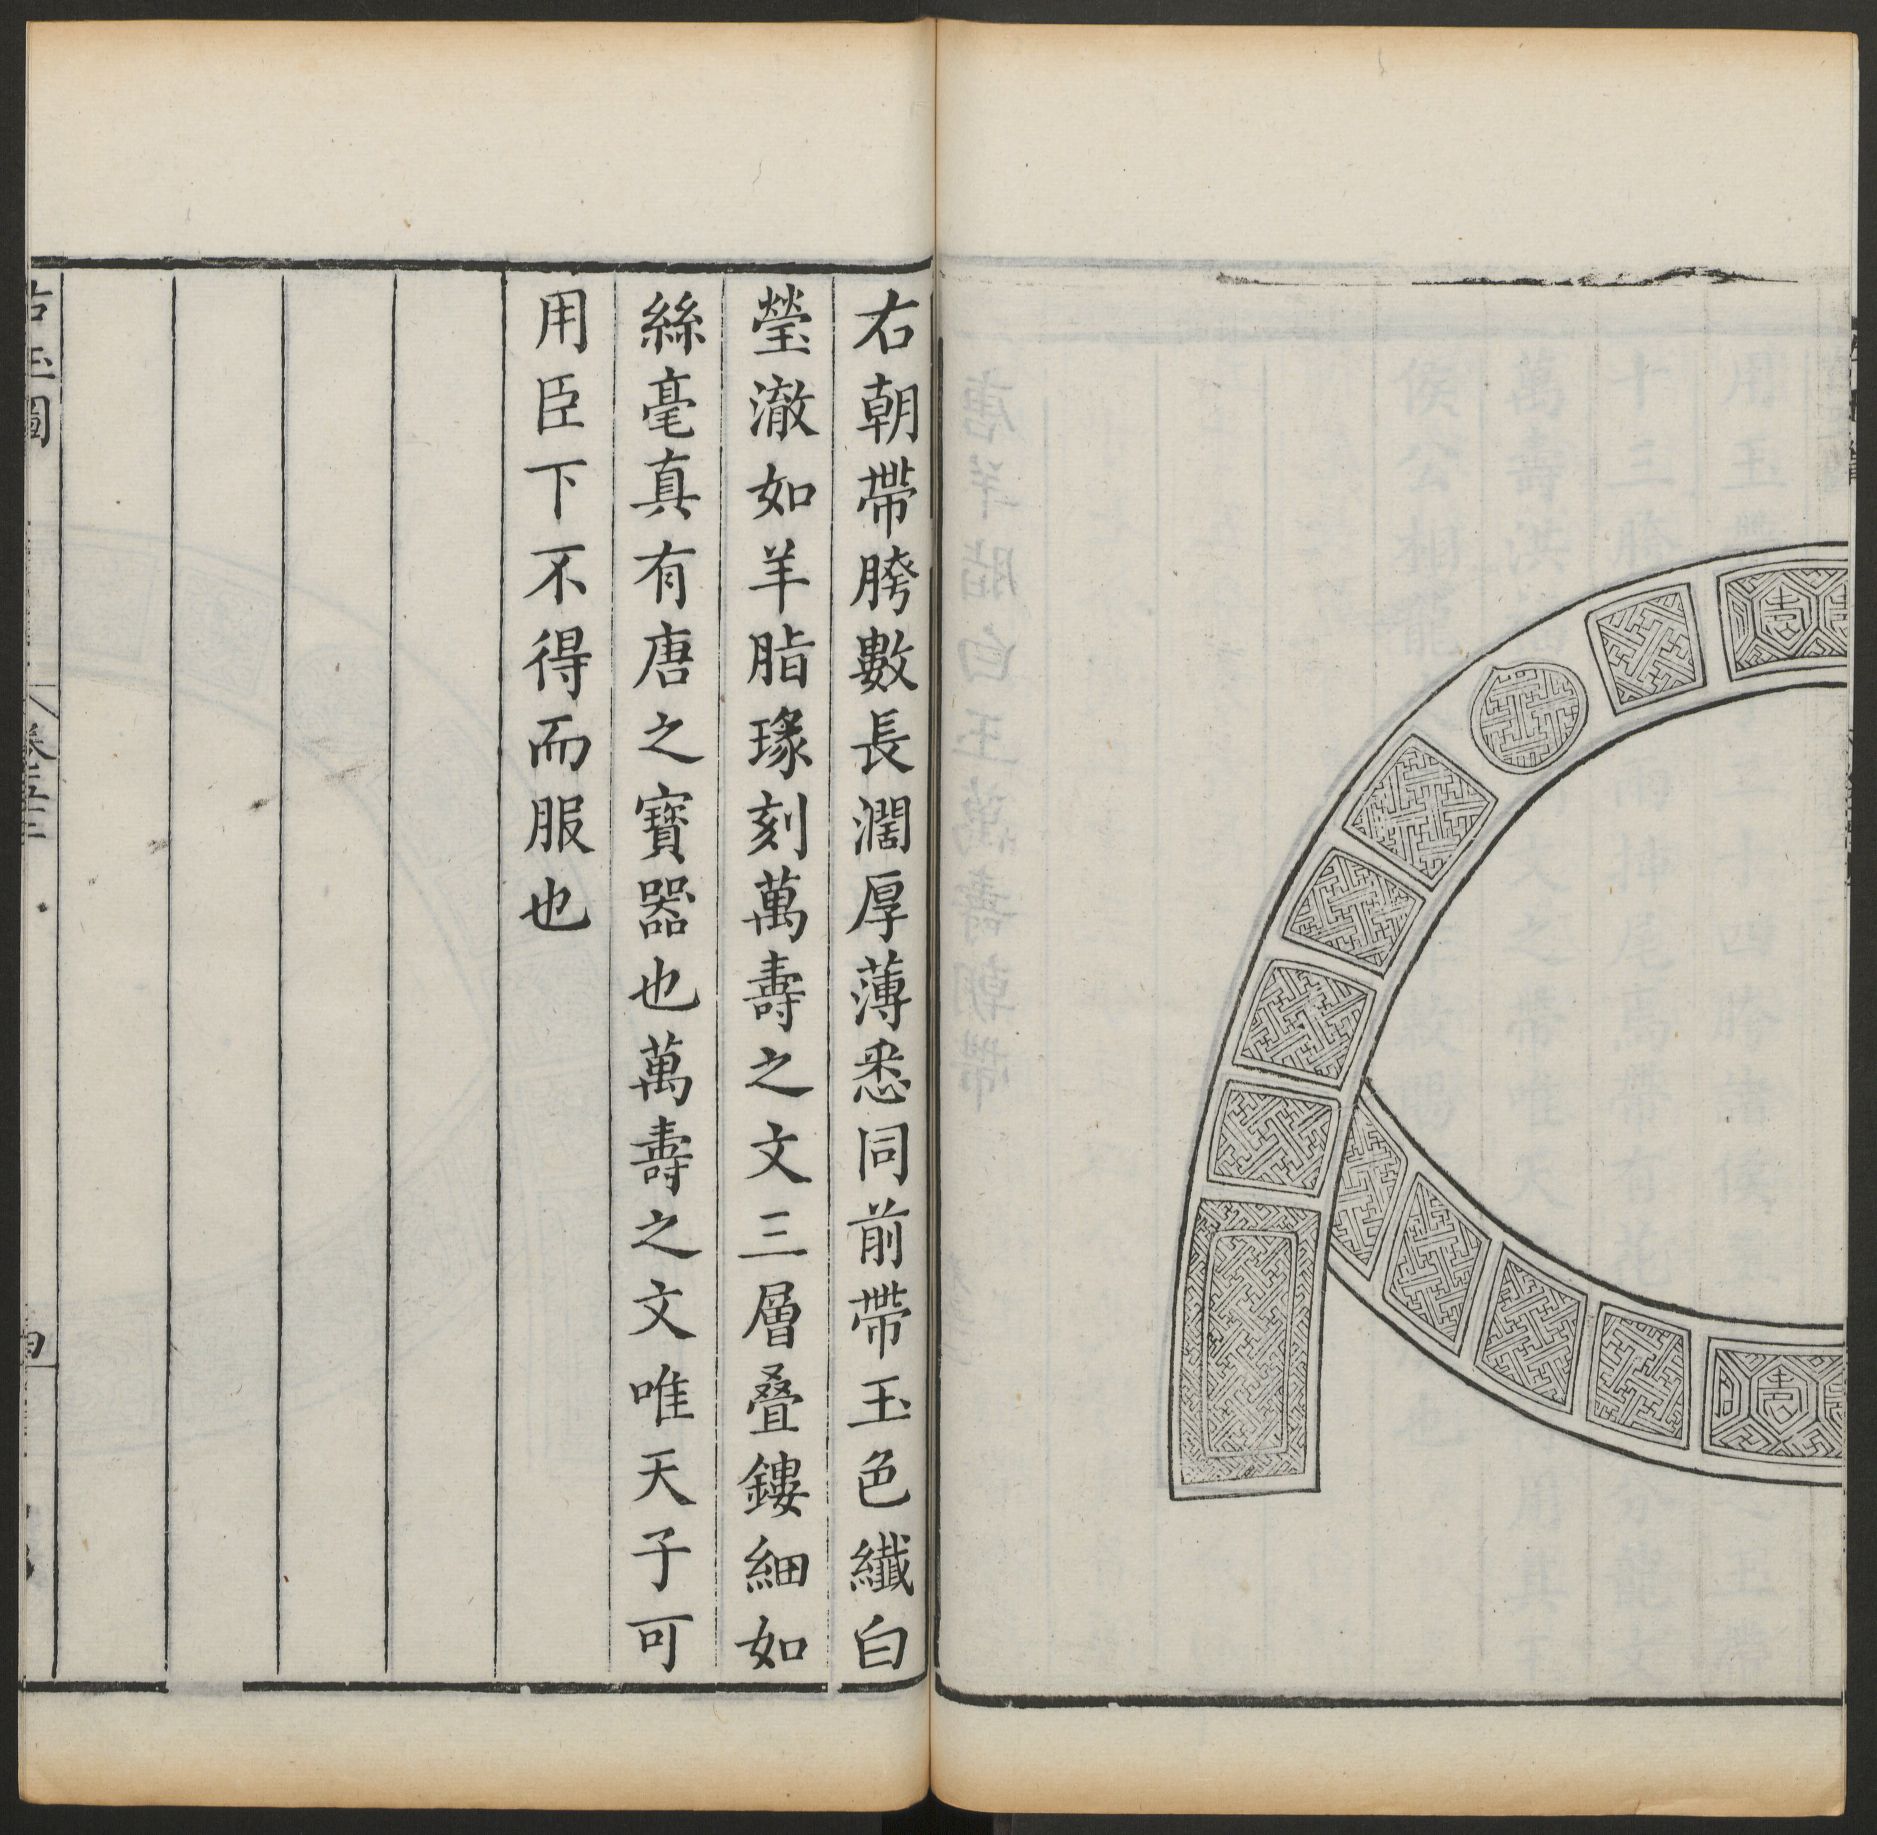 右朝帶胯數長濶厚薄悉同前帶玉色纖白
瑩澈如羊脂瑑刻萬壽之文三層疊鏤細如
絲毫真有唐之寶器也萬壽之文唯天子可
用臣下不得而服也